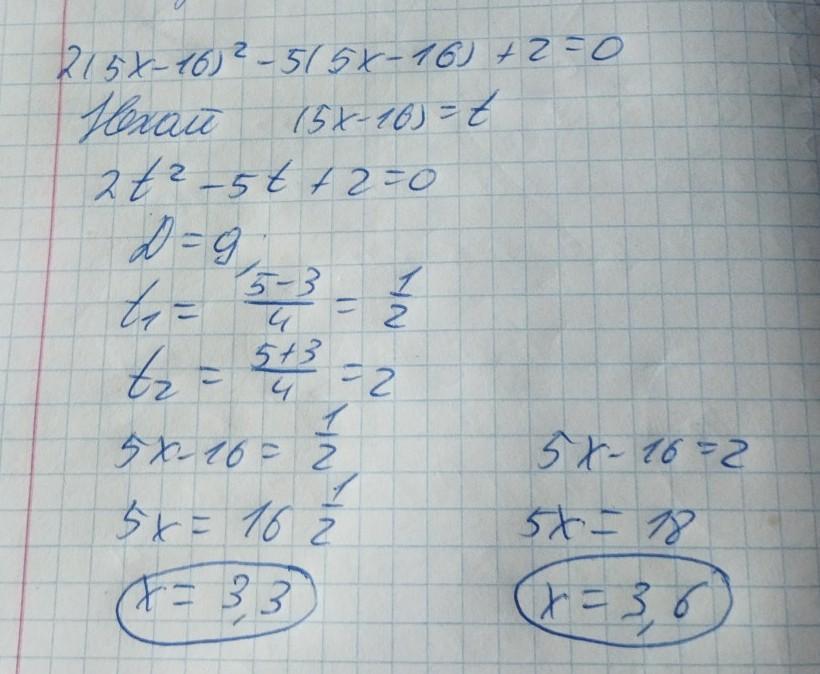 2(5x-16)² - 5(5x-16) + 2 = 0
Нехай (5x-16) = t
2t² - 5t + 2 = 0
D = 9;
t₁ = 5-3/4 = 1/2
t₂ = 5+3/4 = 2
5x-16 = 1/2 5x-16 = 2
5x = 16 1/2 5x = 18
x = 3,3 x = 3,6